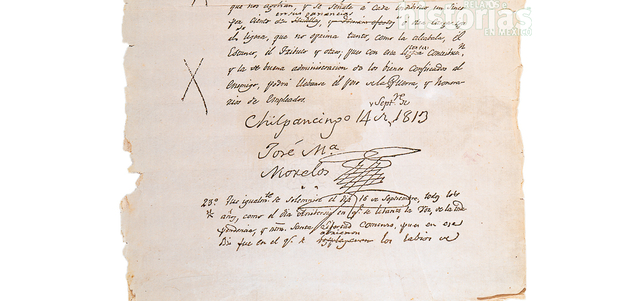 RELATOS E
historias
EN MÉXICO
que nos agobian, y se señale á cada individuo un cinco
por ciento en sus ganancias,
ligera, que no oprima tanto, como la alcabala, el
Estanco, el Tributo y otros, pues con esta ligera contribucn
y la buena administracion de los bienes confiscados al
Enemigo, podrá llebarse el peso de la Guerra, y honora-
rios de Empleados.
Chilpancingo 14 de Septre de 1813
José Ma
Morelos
23o Que igualmte se solemnise el dia 16 de Septiembre, todos los
años, como el dia Anibersario en qe se lebantó la Voz de la Inde
pendencia, y ntra Santa Libertad comenzó, pues en ese
Dia fue en el qe se abrieron desplegaron los labios de